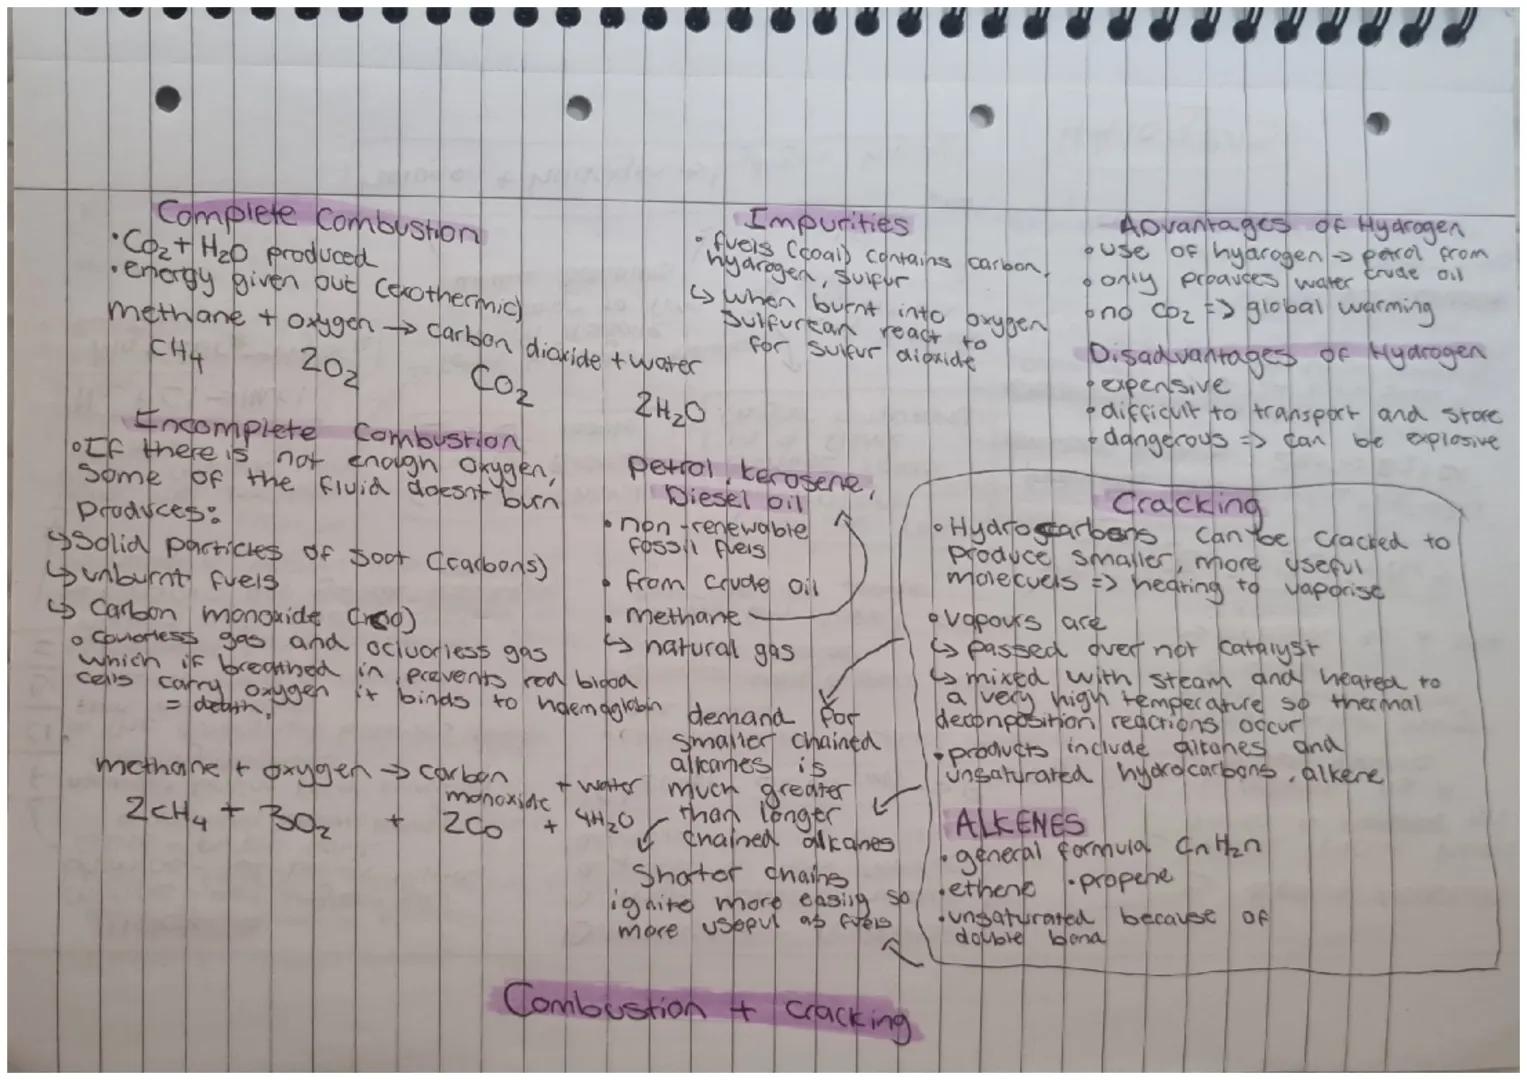 Complete Combustion
• CO₂ + H₂O produced
• energy given out (exothermic)
methane + oxygen → carbon dioxide + water
CH₄ 2O₂ CO₂ 2H₂O
Incomplete Combustion
• If there is not enough oxygen,
some of the fluid doesnt burn
produces:
↳ solid particles of soot (carbons)
↳ unburnt fuels
↳ carbon monoxide
• colourless gas and odourless gas
which if breathed in prevents red blood
cells carry oxygen it binds to haemoglobin
= death.
methane + oxygen → carbon monoxide + water
2CH₄ + 3O₂ + 2CO + 4H₂O
Impurities
• fuels (coal) contains carbon,
hydrogen, sulfur
↳ when burnt into oxygen
sulfur can react to
for sulfur dioxide
Petrol, kerosene,
Diesel oil
• non-renewable
fossil fuels
• from crude oil
• methane
↳ natural gas
demand for
smaller chained
alkanes is
much greater
than longer
chained alkanes
Shorter chains
ignite more easily so
more useful as fuels
Advantages of Hydrogen
• use of hydrogen → petrol from
crude oil
• only produces water
• no CO₂ => global warming
Disadvantages of Hydrogen
• expensive
• difficult to transport and store
• dangerous => can be explosive
Cracking
• Hydrocarbons can be cracked to
produce smaller, more useful
molecuels => heating to vaporise
• vapours are
↳ passed over hot catalyst
↳ mixed with steam and heated to
a very high temperature so thermal
deconposition reactions occur
• products include alkanes and
unsaturated hydrocarbons, alkene
ALKENES
• general formula CnH₂n
• ethene • propene
• unsaturated because of
double bond
Combustion + Cracking